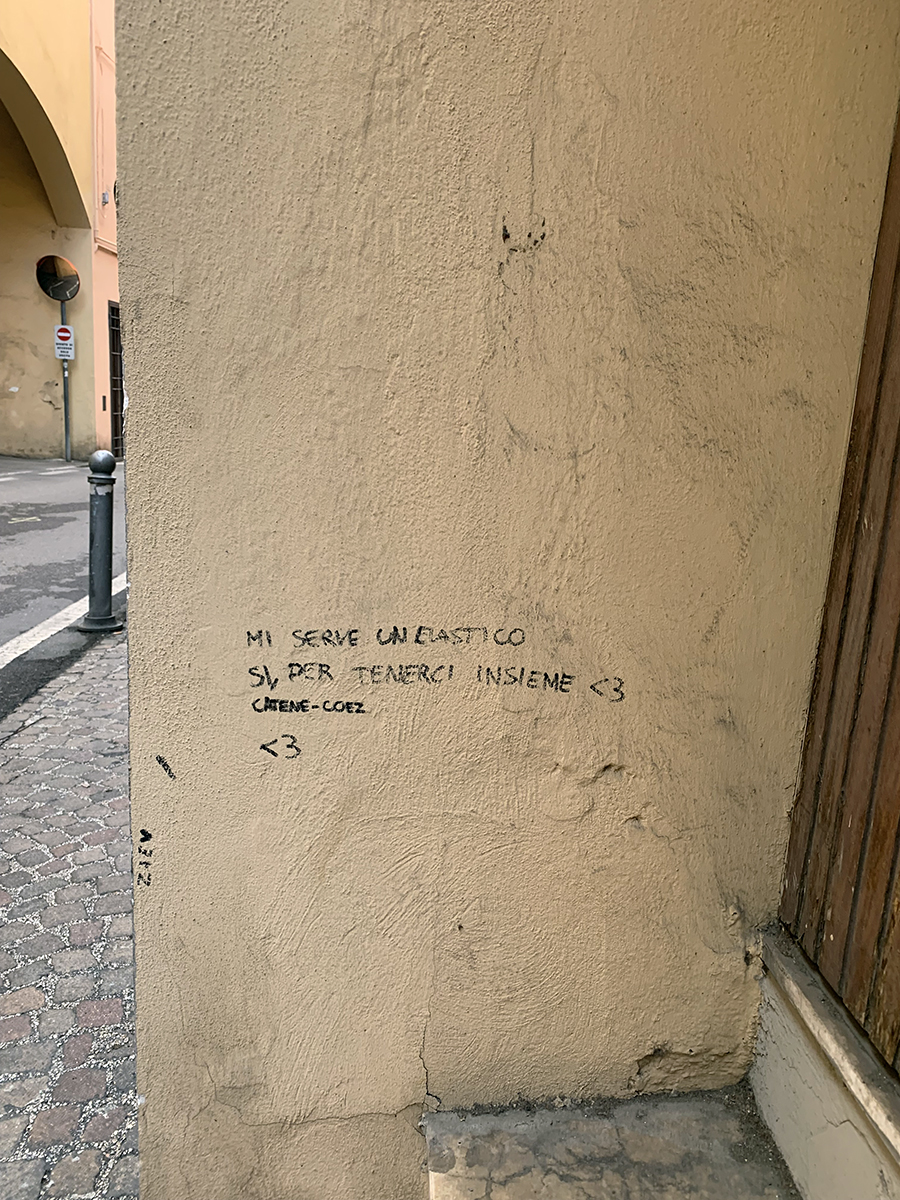 MI SERVE UN ELASTICO
SI, PER TENERCI INSIEME <3
CATENE-COEZ
<3